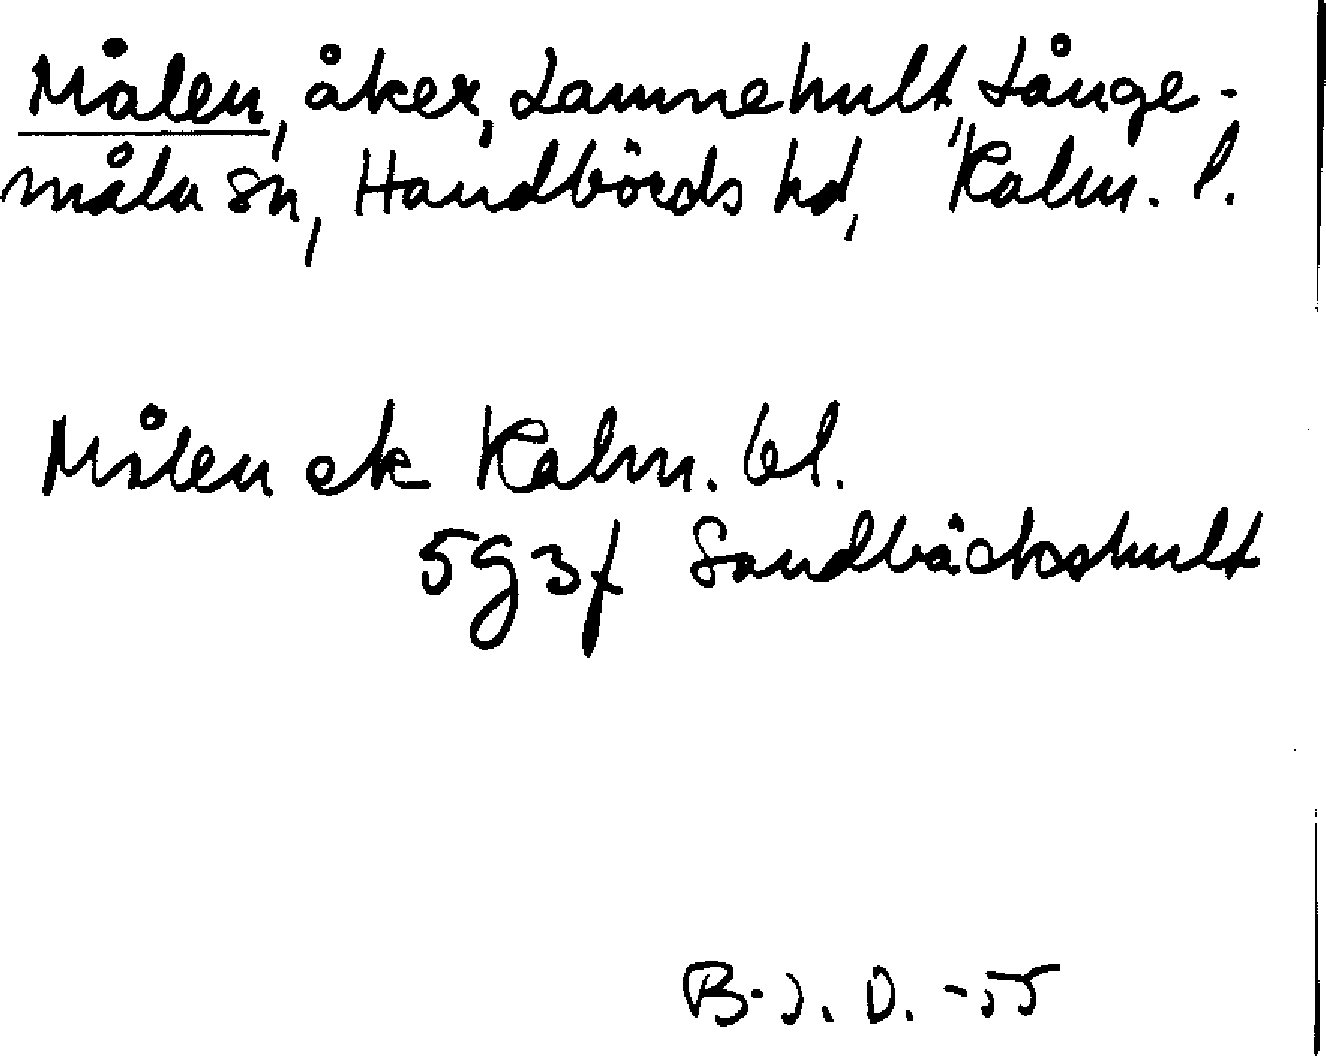 Målen, åker, Lamnehult, Långe-
måla sn, Handbörds hd, Kalm. l.
Målen ek Kalm. bl.
5g3f Sandbäckshult
B.J.D. -55